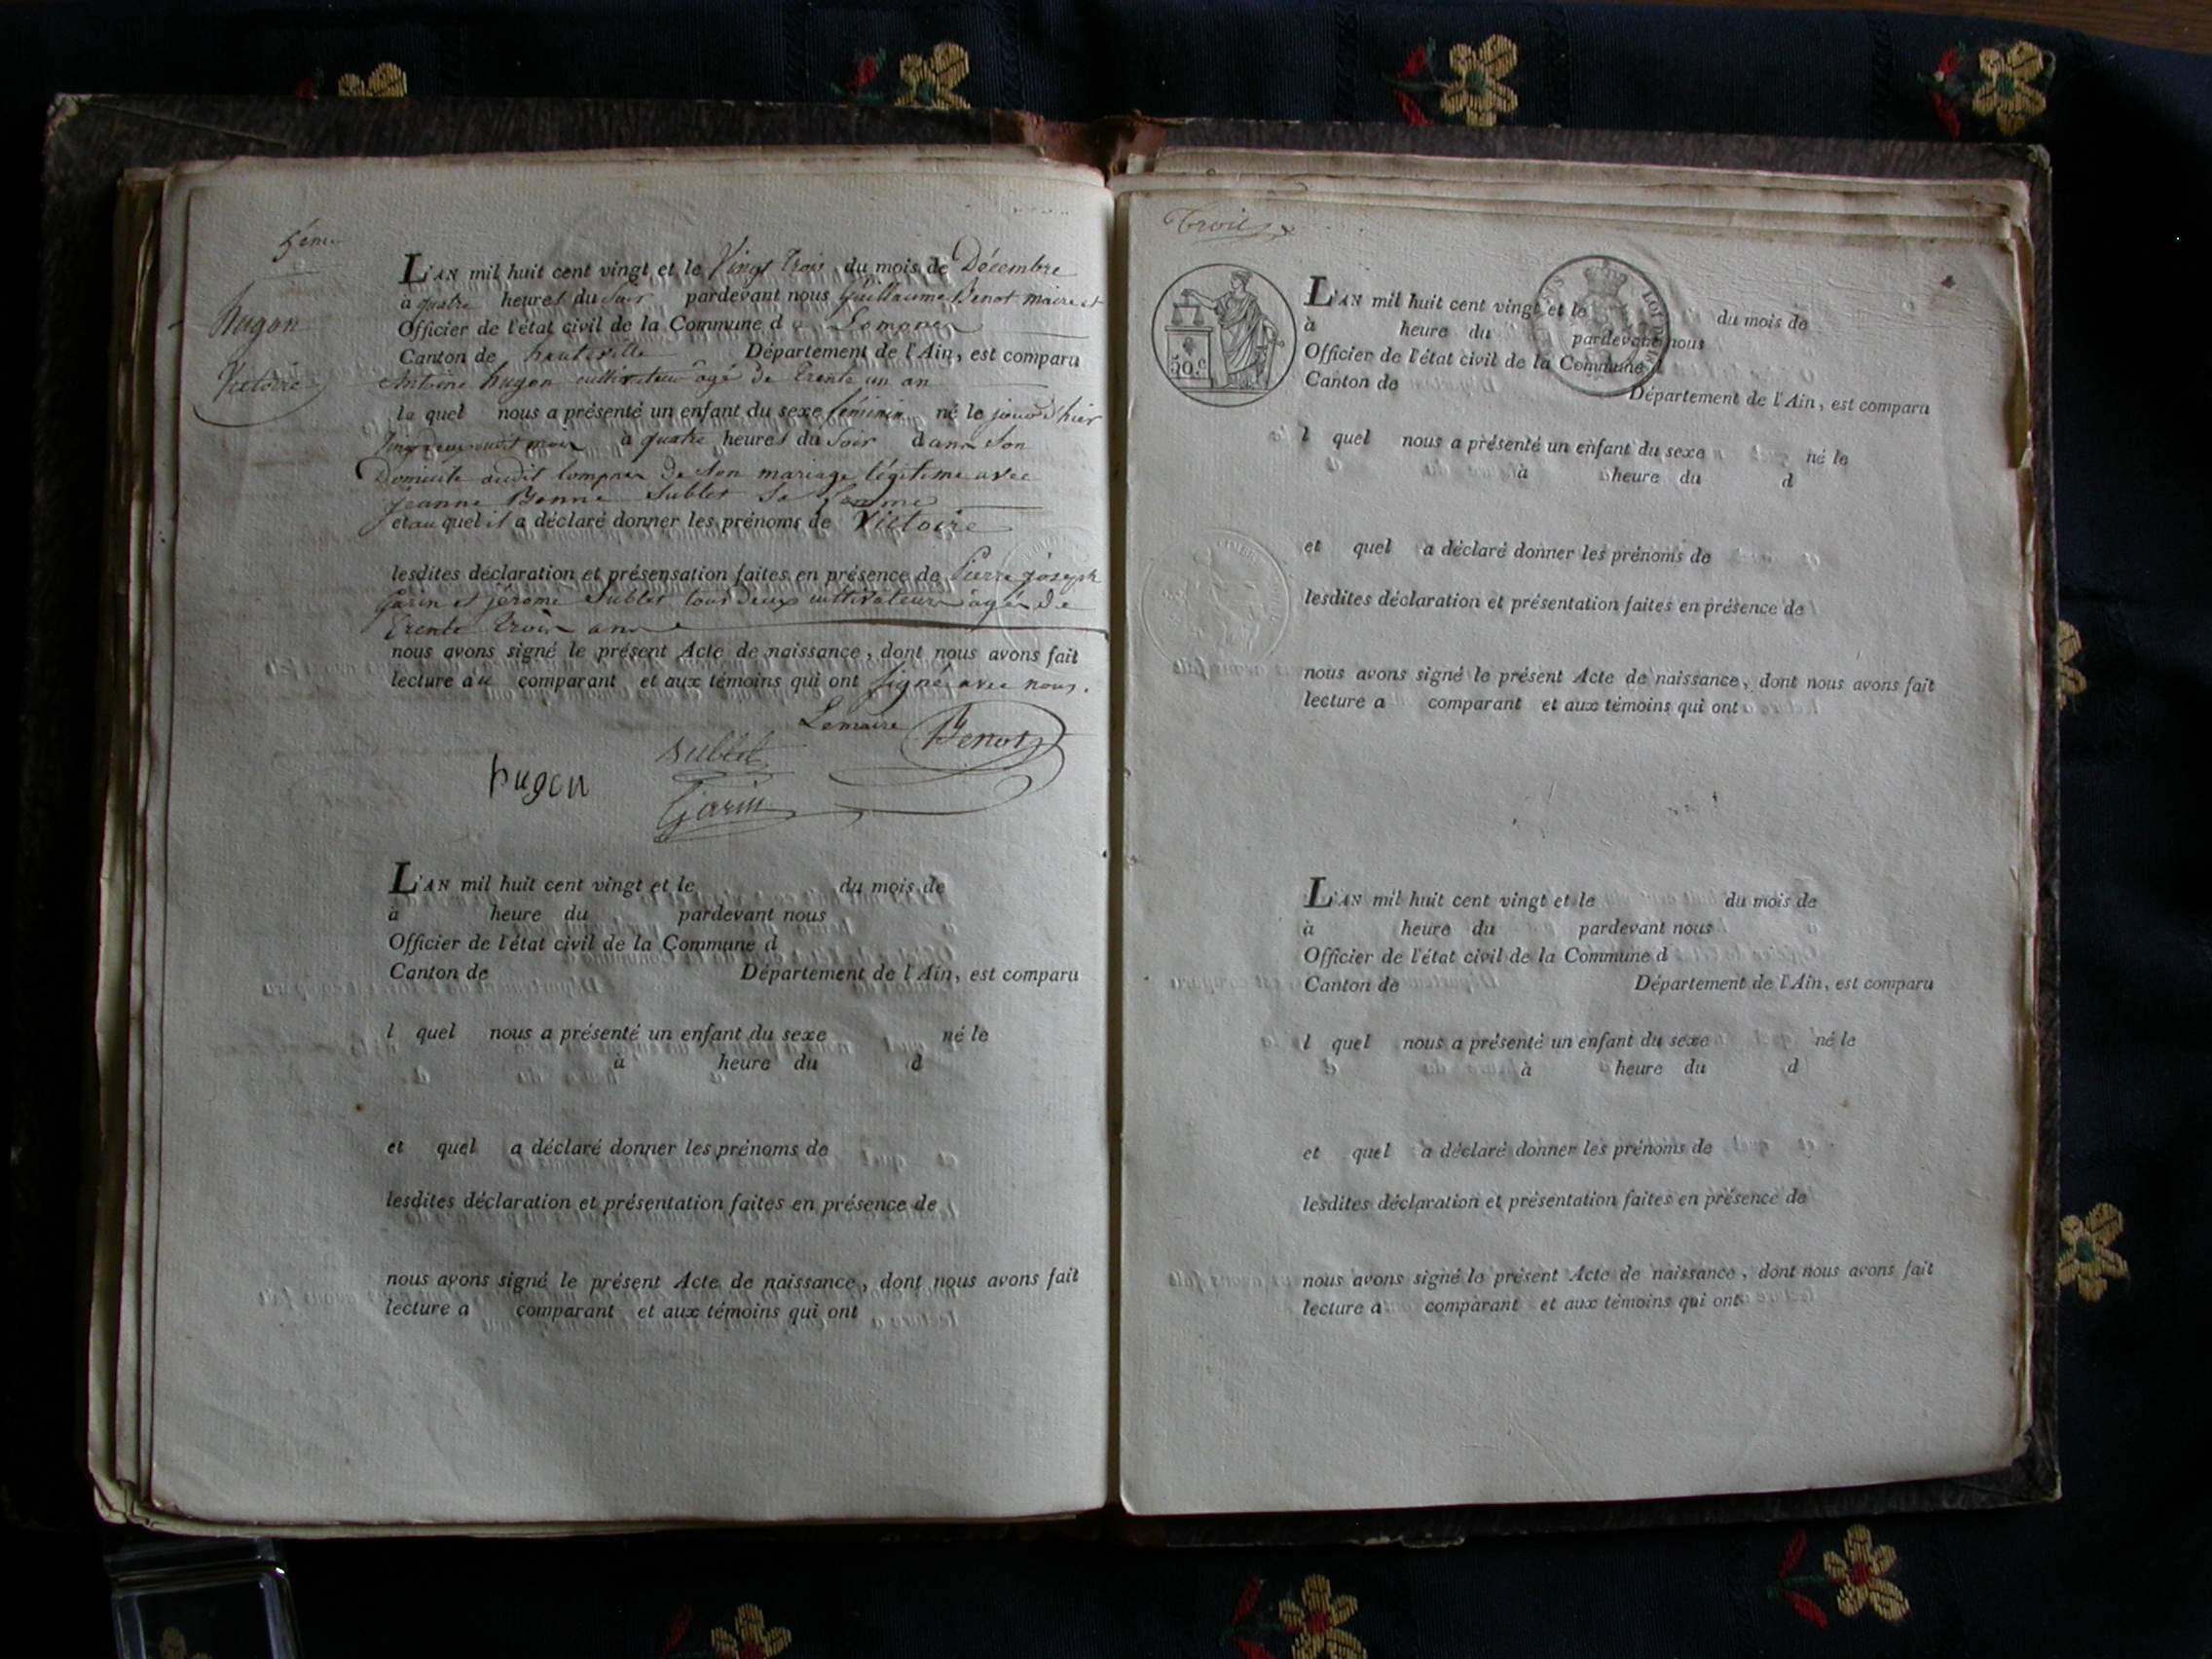 5ème
Hugon
Victoire
L'AN mil huit cent vingt et le Vingt Trois du mois de Décembre
à quatre heures du Soir pardevant nous Guillaume Benot maire et
Officier de l'état civil de la Commune de Lompnes
Canton de hauteville Département de l'Ain, est comparu
Antoine hugon cultivateur agé de Trente un an
le quel nous a présenté un enfant du sexe féminin né le jour d'hier
Vingt deux dudit mois à quatre heures du Soir dans Son
Domicile audit Lompnes de Son mariage légitime avec
Jeanne Benne Sublet Sa femme
et au quel il a déclaré donner les prénoms de Victoire
lesdites déclaration et présensation faites en présence de Pierre joseph
Garin et jérome Sublet tous deux cultivateurs agés de
Trente Trois ans
nous avons signé le présent Acte de naissance, dont nous avons fait
lecture au comparant et aux témoins qui ont Signé avec nous.
Lemaire Benot
Sublet
hugon
Garin
L'AN mil huit cent vingt et le du mois de
à heure du pardevant nous
Officier de l'état civil de la Commune d
Canton de Département de l'Ain, est comparu
l quel nous a présenté un enfant du sexe né le
à heure du d
et quel a déclaré donner les prénoms de
lesdites déclaration et présentation faites en présence de
nous avons signé le présent Acte de naissance, dont nous avons fait
lecture a comparant et aux témoins qui ont
Trois
50 c
LOI DE
L'AN mil huit cent vingt et le du mois de
à heure du pardevant nous
Officier de l'état civil de la Commune d
Canton de Département de l'Ain, est comparu
l quel nous a présenté un enfant du sexe né le
à heure du d
et quel a déclaré donner les prénoms de
lesdites déclaration et présentation faites en présence de
nous avons signé le présent Acte de naissance, dont nous avons fait
lecture a comparant et aux témoins qui ont
L'AN mil huit cent vingt et le du mois de
à heure du pardevant nous
Officier de l'état civil de la Commune d
Canton de Département de l'Ain, est comparu
l quel nous a présenté un enfant du sexe né le
à heure du d
et quel a déclaré donner les prénoms de
lesdites déclaration et présentation faites en présence de
nous avons signé le présent Acte de naissance, dont nous avons fait
lecture a comparant et aux témoins qui ont